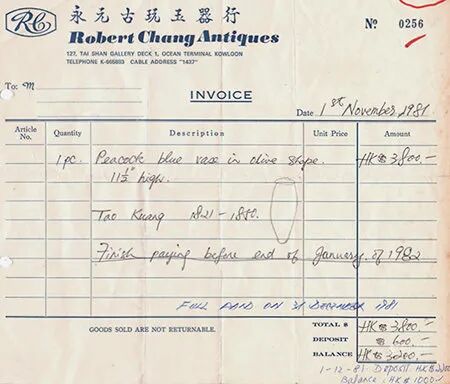 RC
永元古玩玉器行
Robert Chang Antiques
127, TAI SHAN GALLERY DECK 1, OCEAN TERMINAL KOWLOON
TELEPHONE K-665893 CABLE ADDRESS "1437"
Nº 0256
To: M
INVOICE
Date 1st November 1981
Article No. Quantity Description Unit Price Amount
1 pc. Peacock blue vase in olive shape. HK$ 3,800.-
11½" high.
Tao Kuang 1821-1850.
Finish paying before end of January of 1982
FULL PAID ON 31 DECEMBER 1981
GOODS SOLD ARE NOT RETURNABLE.
TOTAL $ HK$ 3,800.-
DEPOSIT $ 600.-
BALANCE HK$ 3,200.-
1-12-81 Deposit HK$
Balance: HK$ 1000.-